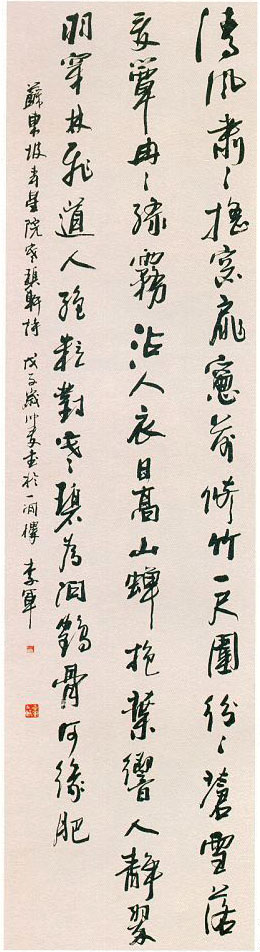 清風肅〻搖窗扉窻前脩竹一尺圍紛〻蒼雪落
夏簟冉〻綠霧沾人衣日高山蟬抱葉響人靜翠
羽穿林飛道人絕粒對寒碧為問鶴骨何緣肥
蘇東坡壽星院寒碧軒詩 戊子歲 書於一 李軍